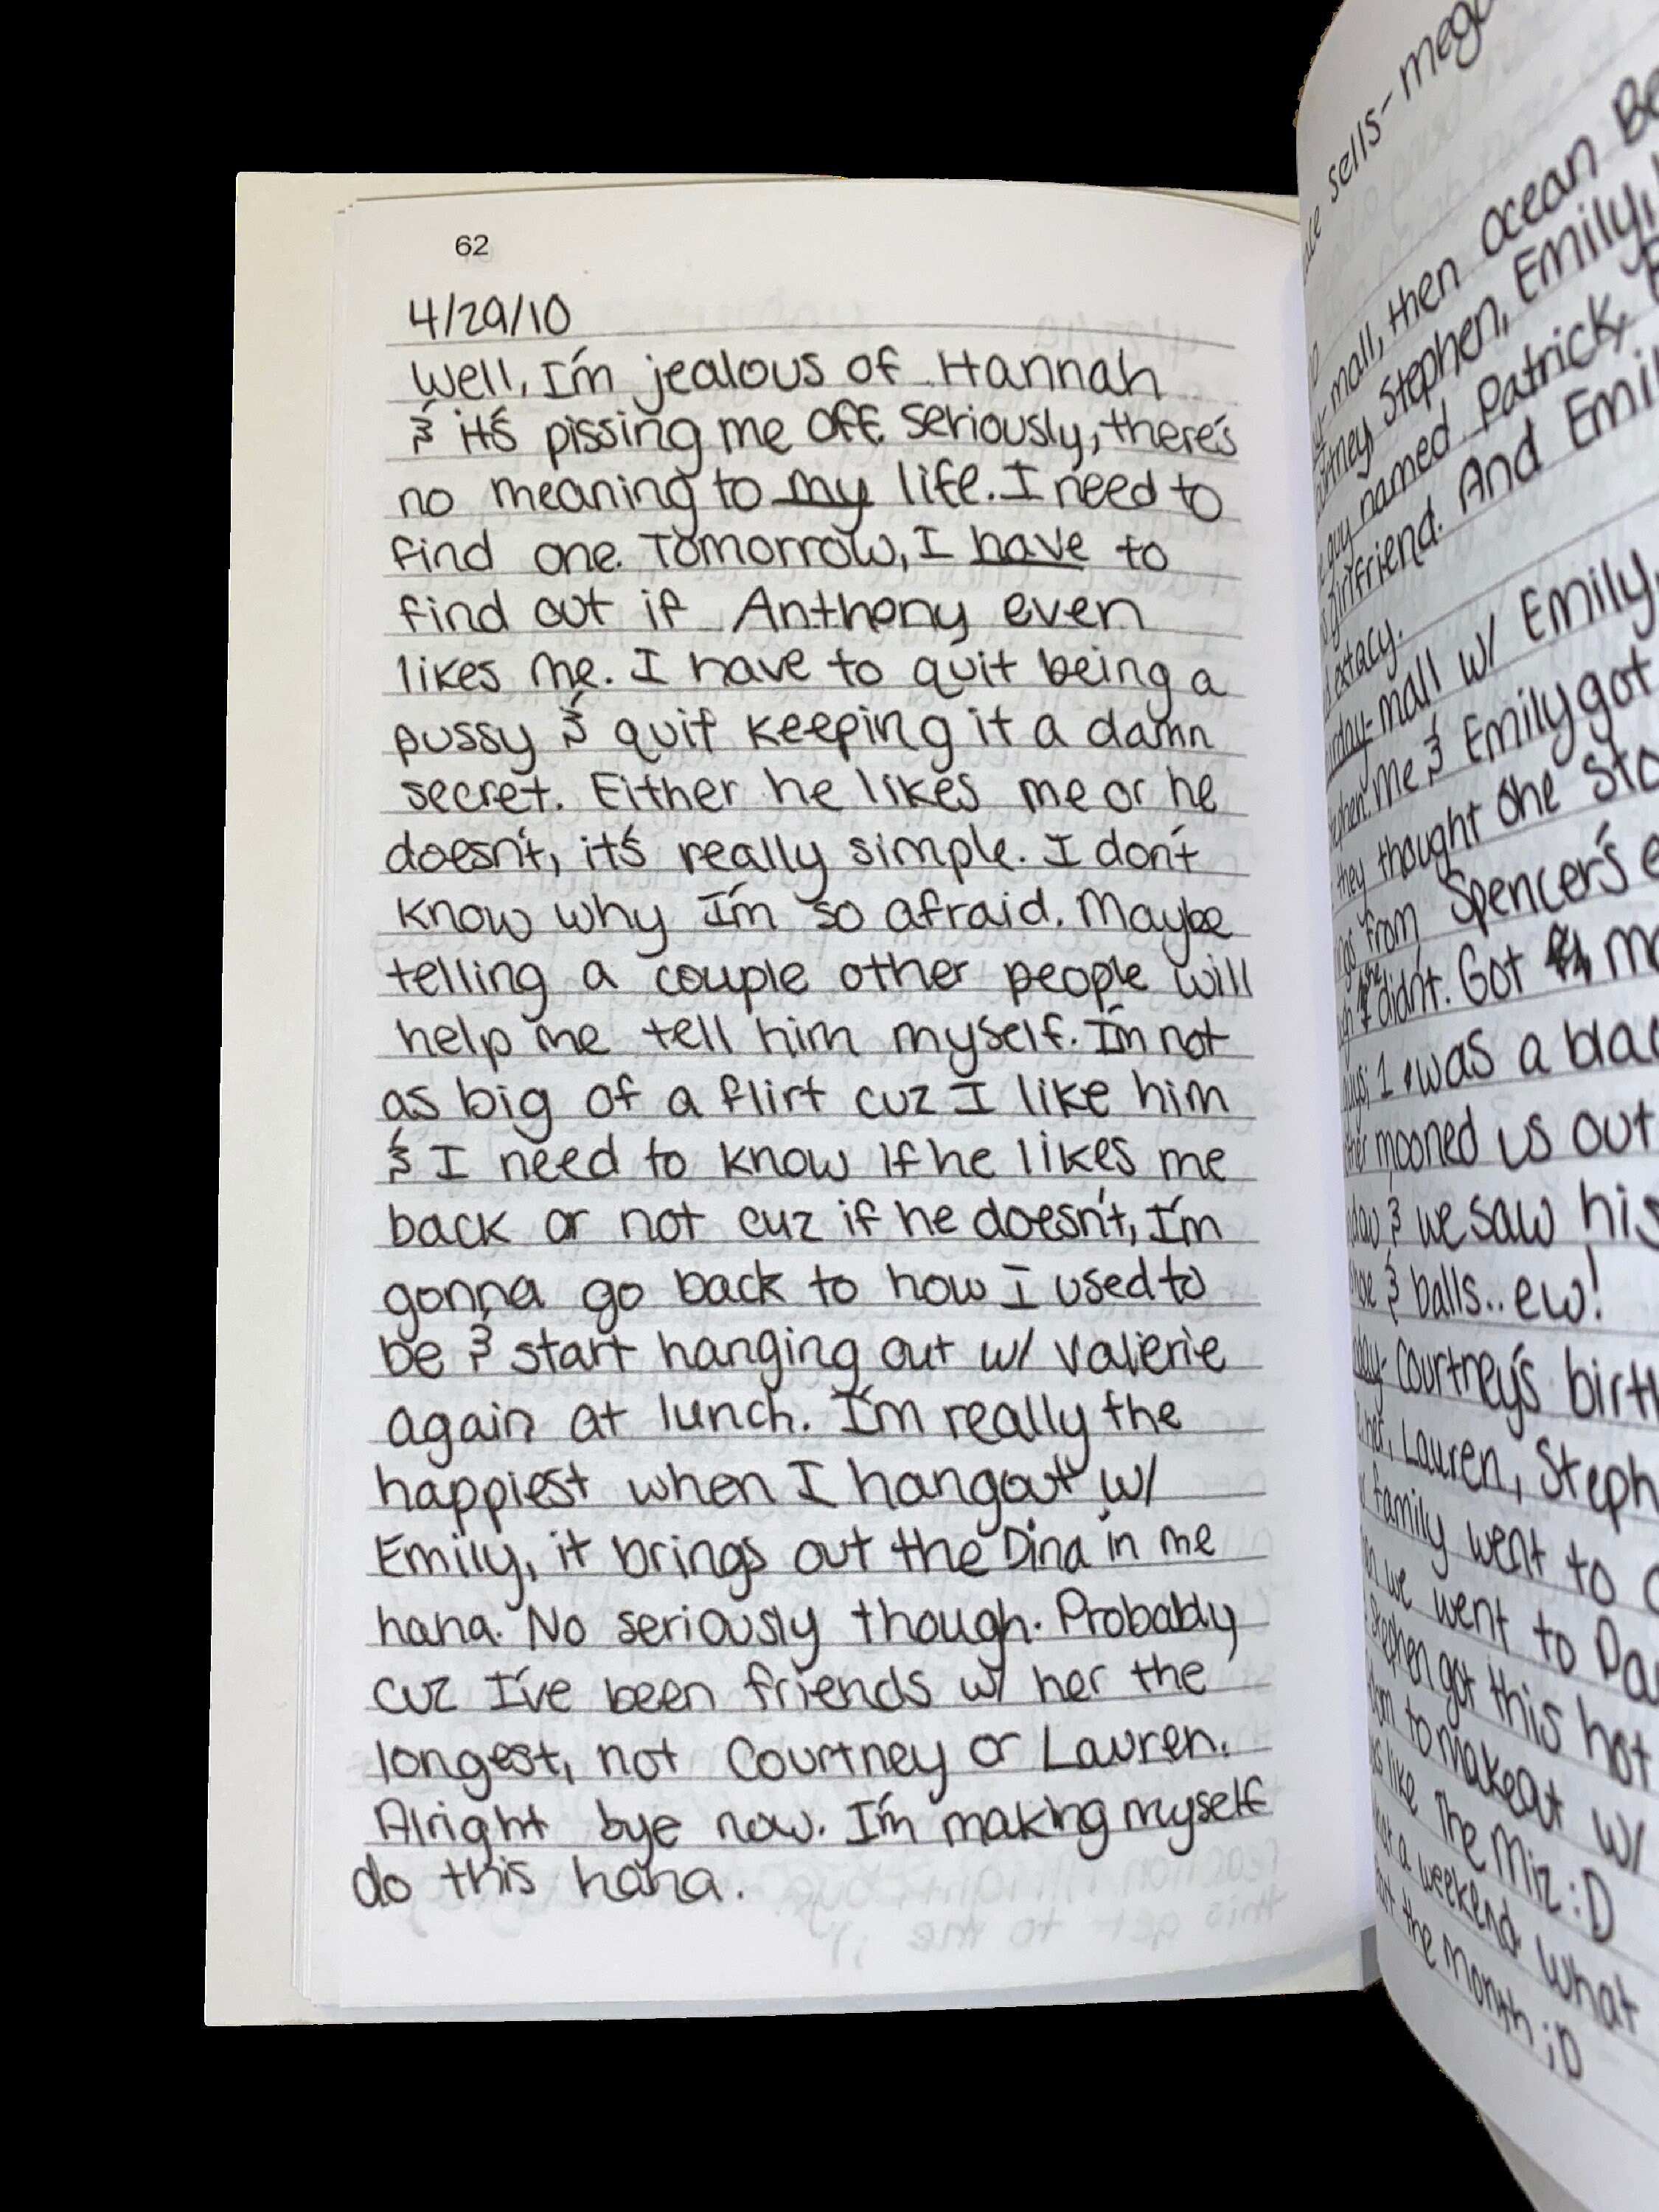 62
4/29/10
Well, I'm jealous of Hannah
& it's pissing me off. Seriously, there's
no meaning to my life. I need to
find one. Tomorrow, I have to
find out if Anthony even
likes me. I have to quit being a
pussy & quit keeping it a damn
secret. Either he likes me or he
doesn't, it's really simple. I don't
know why I'm so afraid. Maybe
telling a couple other people will
help me tell him myself. I'm not
as big of a flirt cuz I like him
& I need to know if he likes me
back or not cuz if he doesn't, I'm
gonna go back to how I used to
be & start hanging out w/ Valierie
again at lunch. I'm really the
happiest when I hangout w/
Emily, it brings out the Dina in me
haha. No seriously though. Probably
cuz I've been friends w/ her the
longest, not Courtney or Lauren.
Alright bye now. I'm making myself
do this haha.
sells-
mall, then ocean
Stephen, Emily,
guy named Patrick,
girlfriend. And
extacy.
mall w/ Emily,
Me & Emily got
they thought one
from Spencer's
didn't. Got
1 was a
mooned us out
& we saw his
& balls.. ew!
Courtney's
her, Lauren,
family went to
we went to
Stephen got this hot
to makeout w/
like The Miz :D
a weekend. What
the month ;D